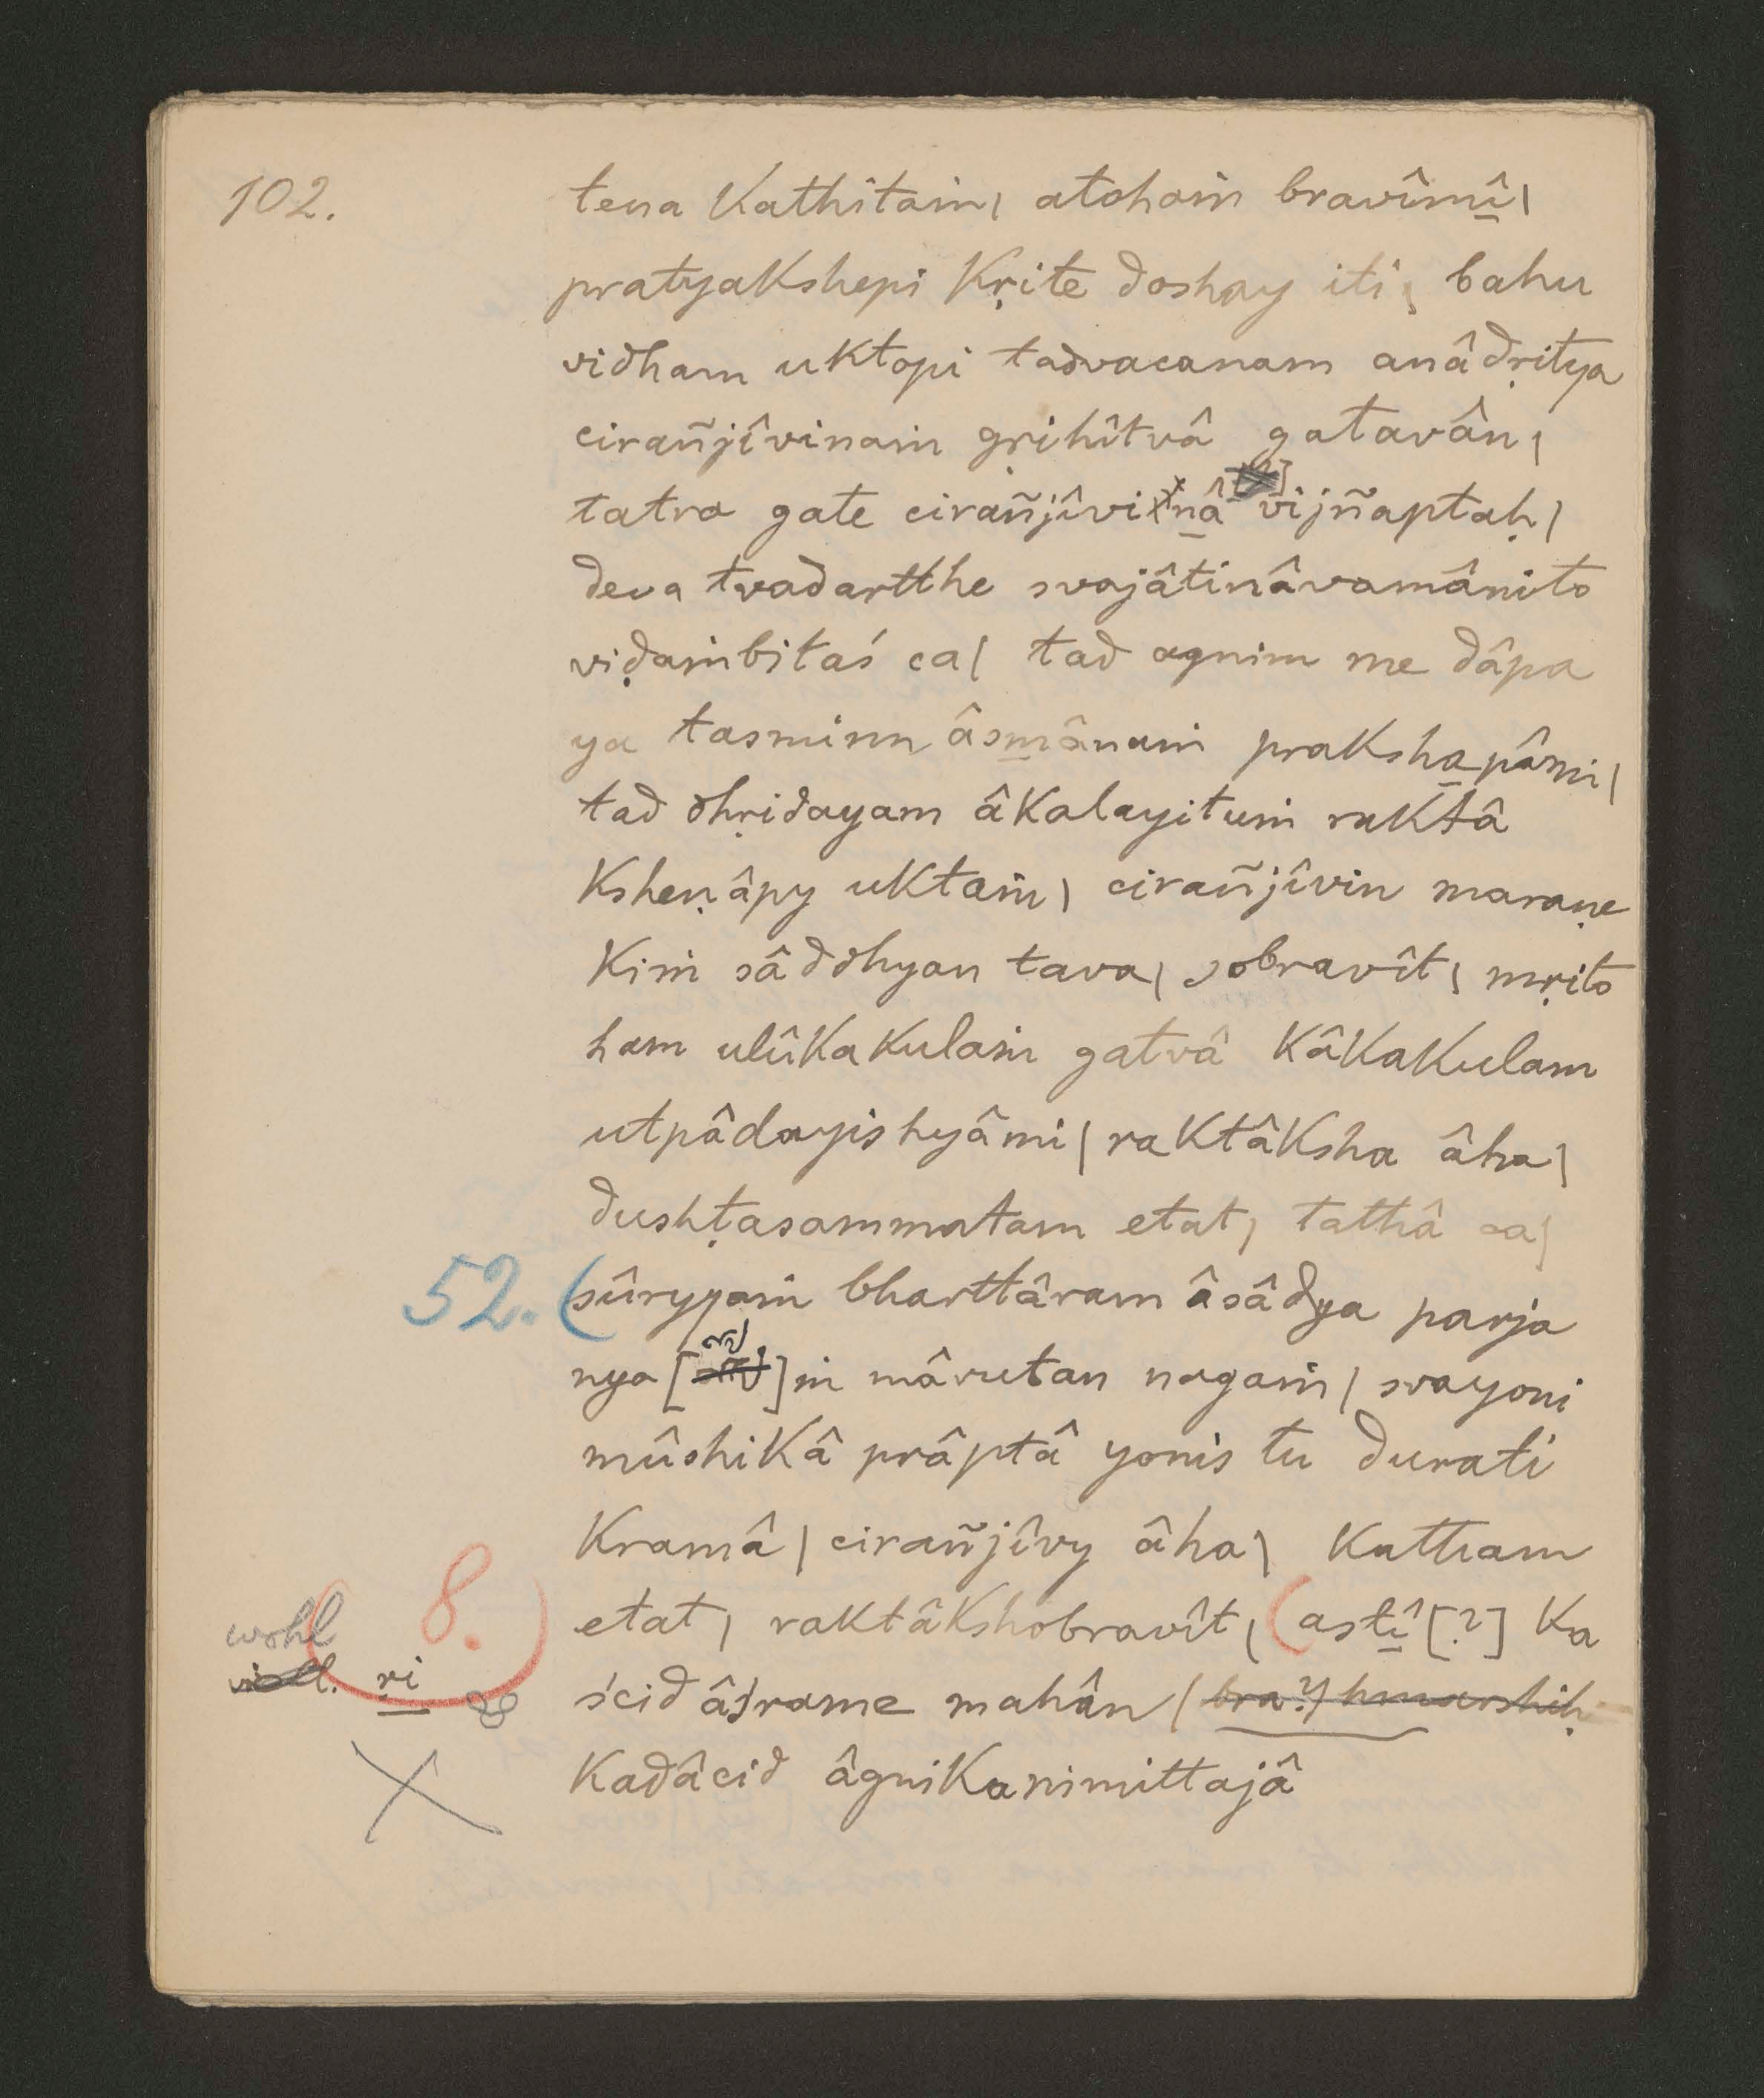 102.
tena kathitaṁ| atohaṁ bravîmî|
pratyakshepi kṛite doshay iti| bahu
vidham uktopi tadvacanam anâdṛitya
cirañjîvinaṁ gṛihîtvâ gatavân|
tatra gate cirañjîvinâ vijñaptaḥ|
deva tvadartthe svajâtinâvamânito
viḍaṁbitaś ca| tad agnim me dâpa
ya tasminn âsmânaṁ prakshapâmi|
tad dhṛidayam âkalayituṁ raktâ
ksheṇâpy uktaṁ| cirañjîvin maraṇe
kiṁ sâddhyan tava| sobravît| mṛito
ham ulûkakulaṁ gatvâ kâkakulam
utpâdayishyâmi| raktâksha âha|
dushṭasammatam etat| tathâ ca|
52. (sûryyaṁ bharttâram âsâdya parja
nya[ ]ṁ mârutan nagaṁ| svayoni
mûshikâ prâptâ yonis tu durati
kramâ| cirañjîvy âha| katham
8. etat| raktâkshobravît| (astî [?] ka
wohl
vicll. ṛi
ścid âśrame mahân (bra?) hmarshiḥ
kadâcid âgnikanimittajâ